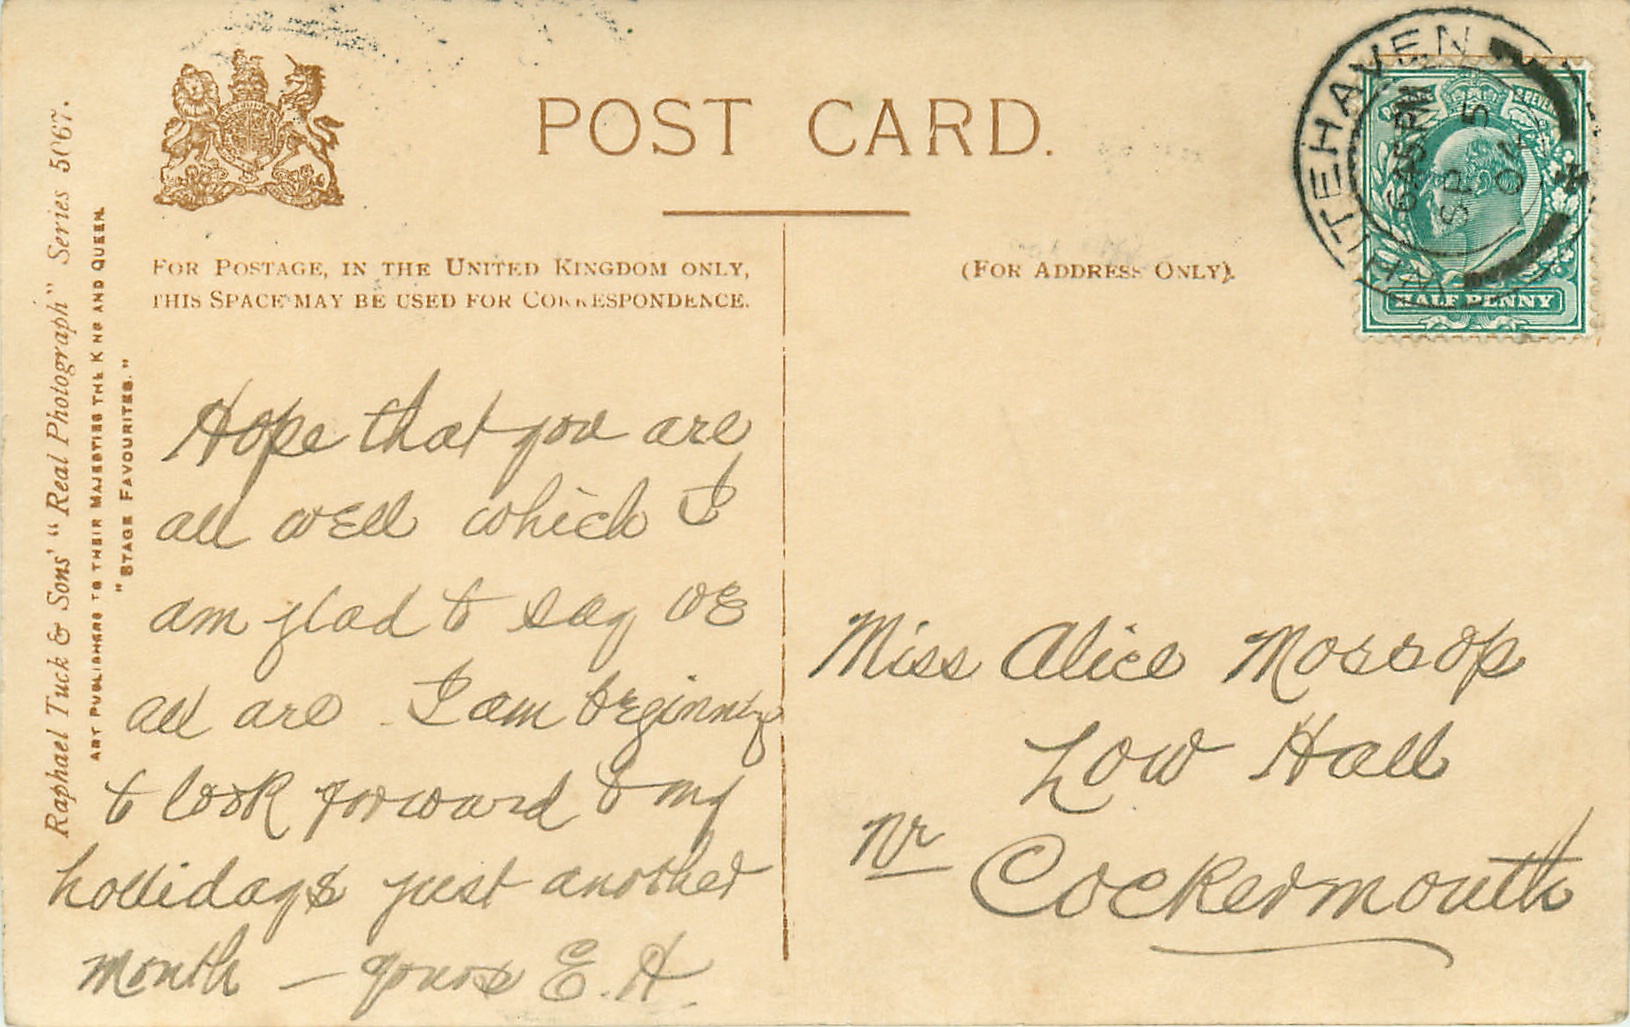 POST CARD.
FOR POSTAGE, IN THE UNITED KINGDOM ONLY,
THIS SPACE MAY BE USED FOR CORRESPONDENCE.
(FOR ADDRESS ONLY).
Raphael Tuck & Sons' "Real Photograph" Series 5067.
ART PUBLISHERS TO THEIR MAJESTIES THE KING AND QUEEN.
"STAGE FAVOURITES."
WHITEHAVEN
6 45 PM
SP 5
04
HALFPENNY
Hope that you are
all well which I
am glad to say we
all are. I am beginning
to look forward to my
hollidays just another
month – yours E. H.
Miss Alice Mossop
Low Hall
Nr
Cockermouth